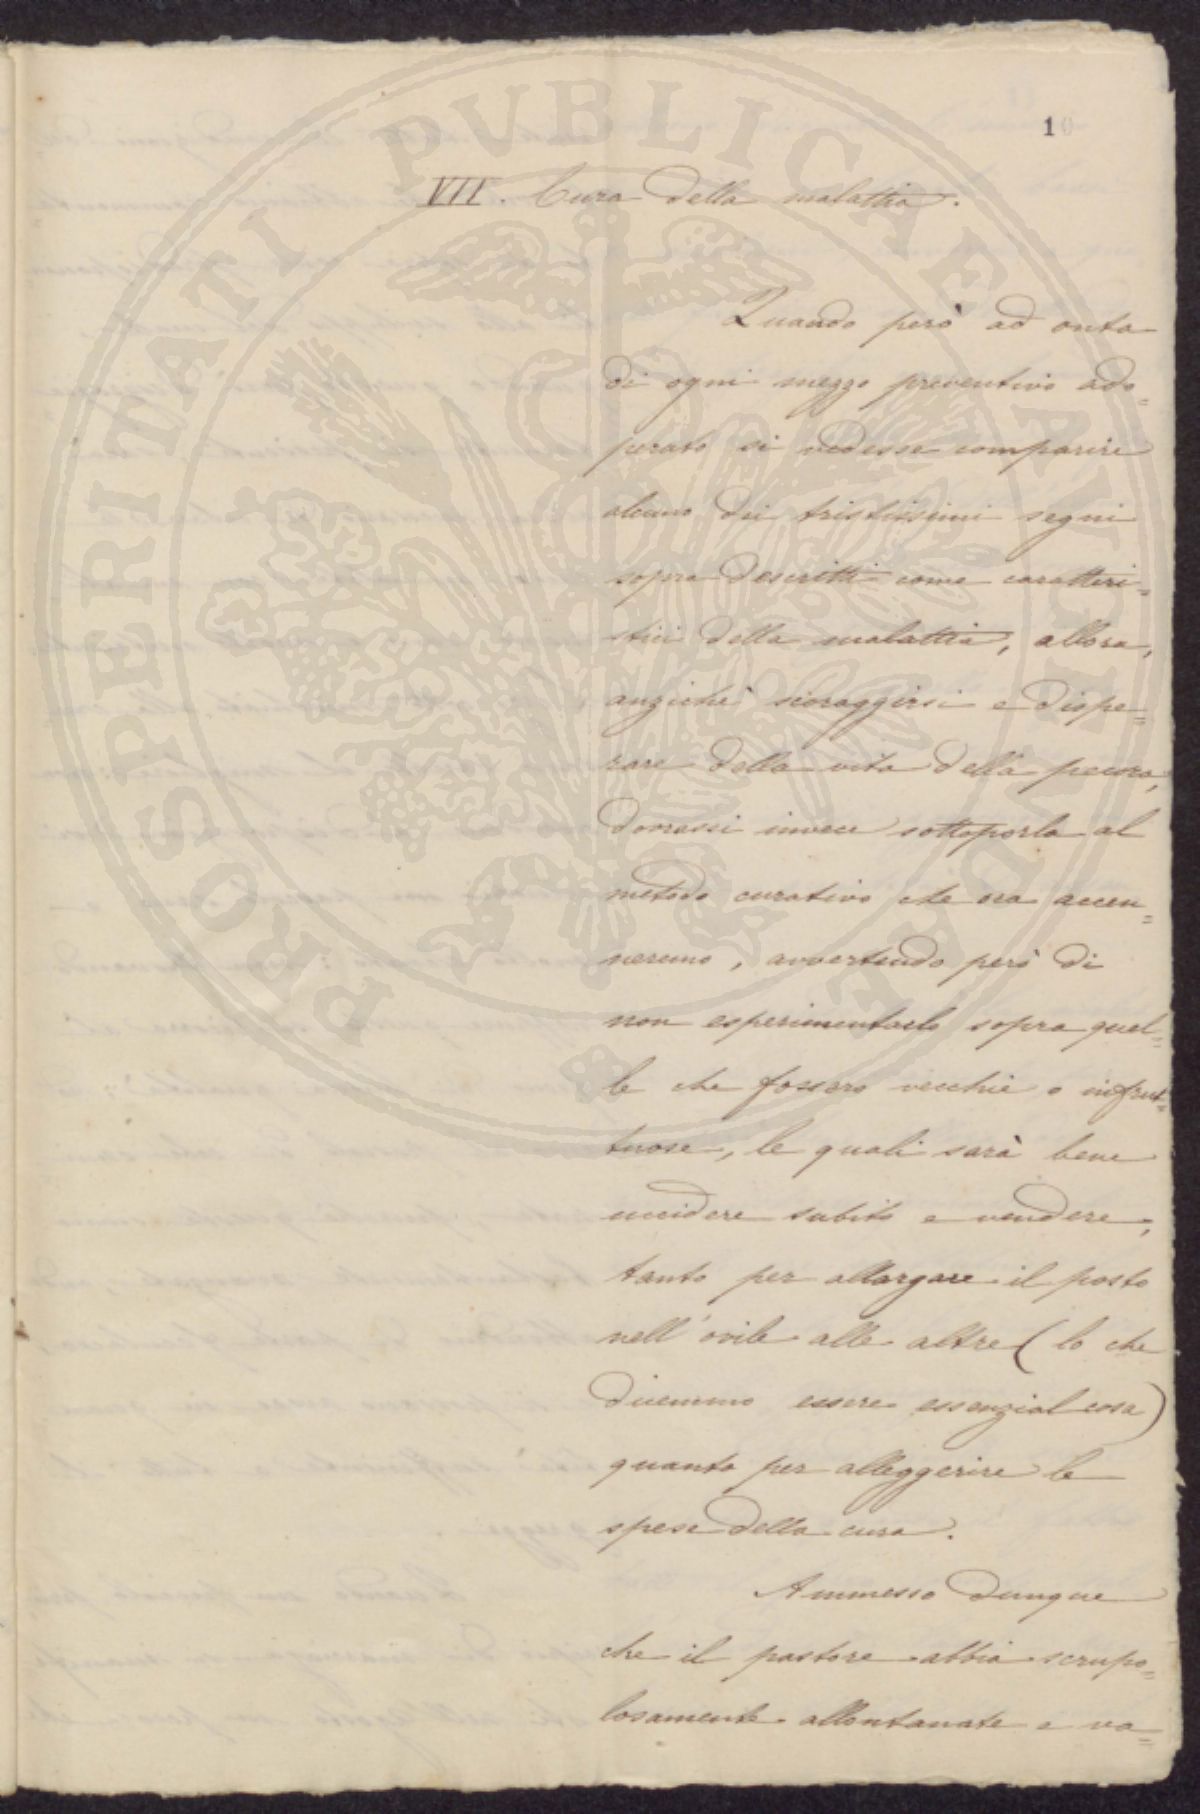 10
VII. Cura della malattia.
Quando però ad onta
di ogni mezzo preventivo ado=
perato si vedesse comparire
alcuno dei tristissimi segni
sopra descritti come caratteri=
stici della malattia, allora,
anzichè scoraggirsi e dispe=
rare della vita della pecora,
dovrassi invece sottoporla al
metodo curativo che ora accen=
neremo, avvertendo però di
non esperimentarlo sopra quel=
le che fossero vecchie o infrut=
tuose, le quali sarà bene
uccidere subito e vendere,
tanto per allargare il posto
nell'ovile alle altre (lo che
dicemmo essere essenzial cosa)
quanto per alleggerire le
spese della cura.
Ammesso dunque
che il pastore abbia scrupo=
losamente allontanate e va=
PROSPERITATI PVBLICAE AVGENDAE